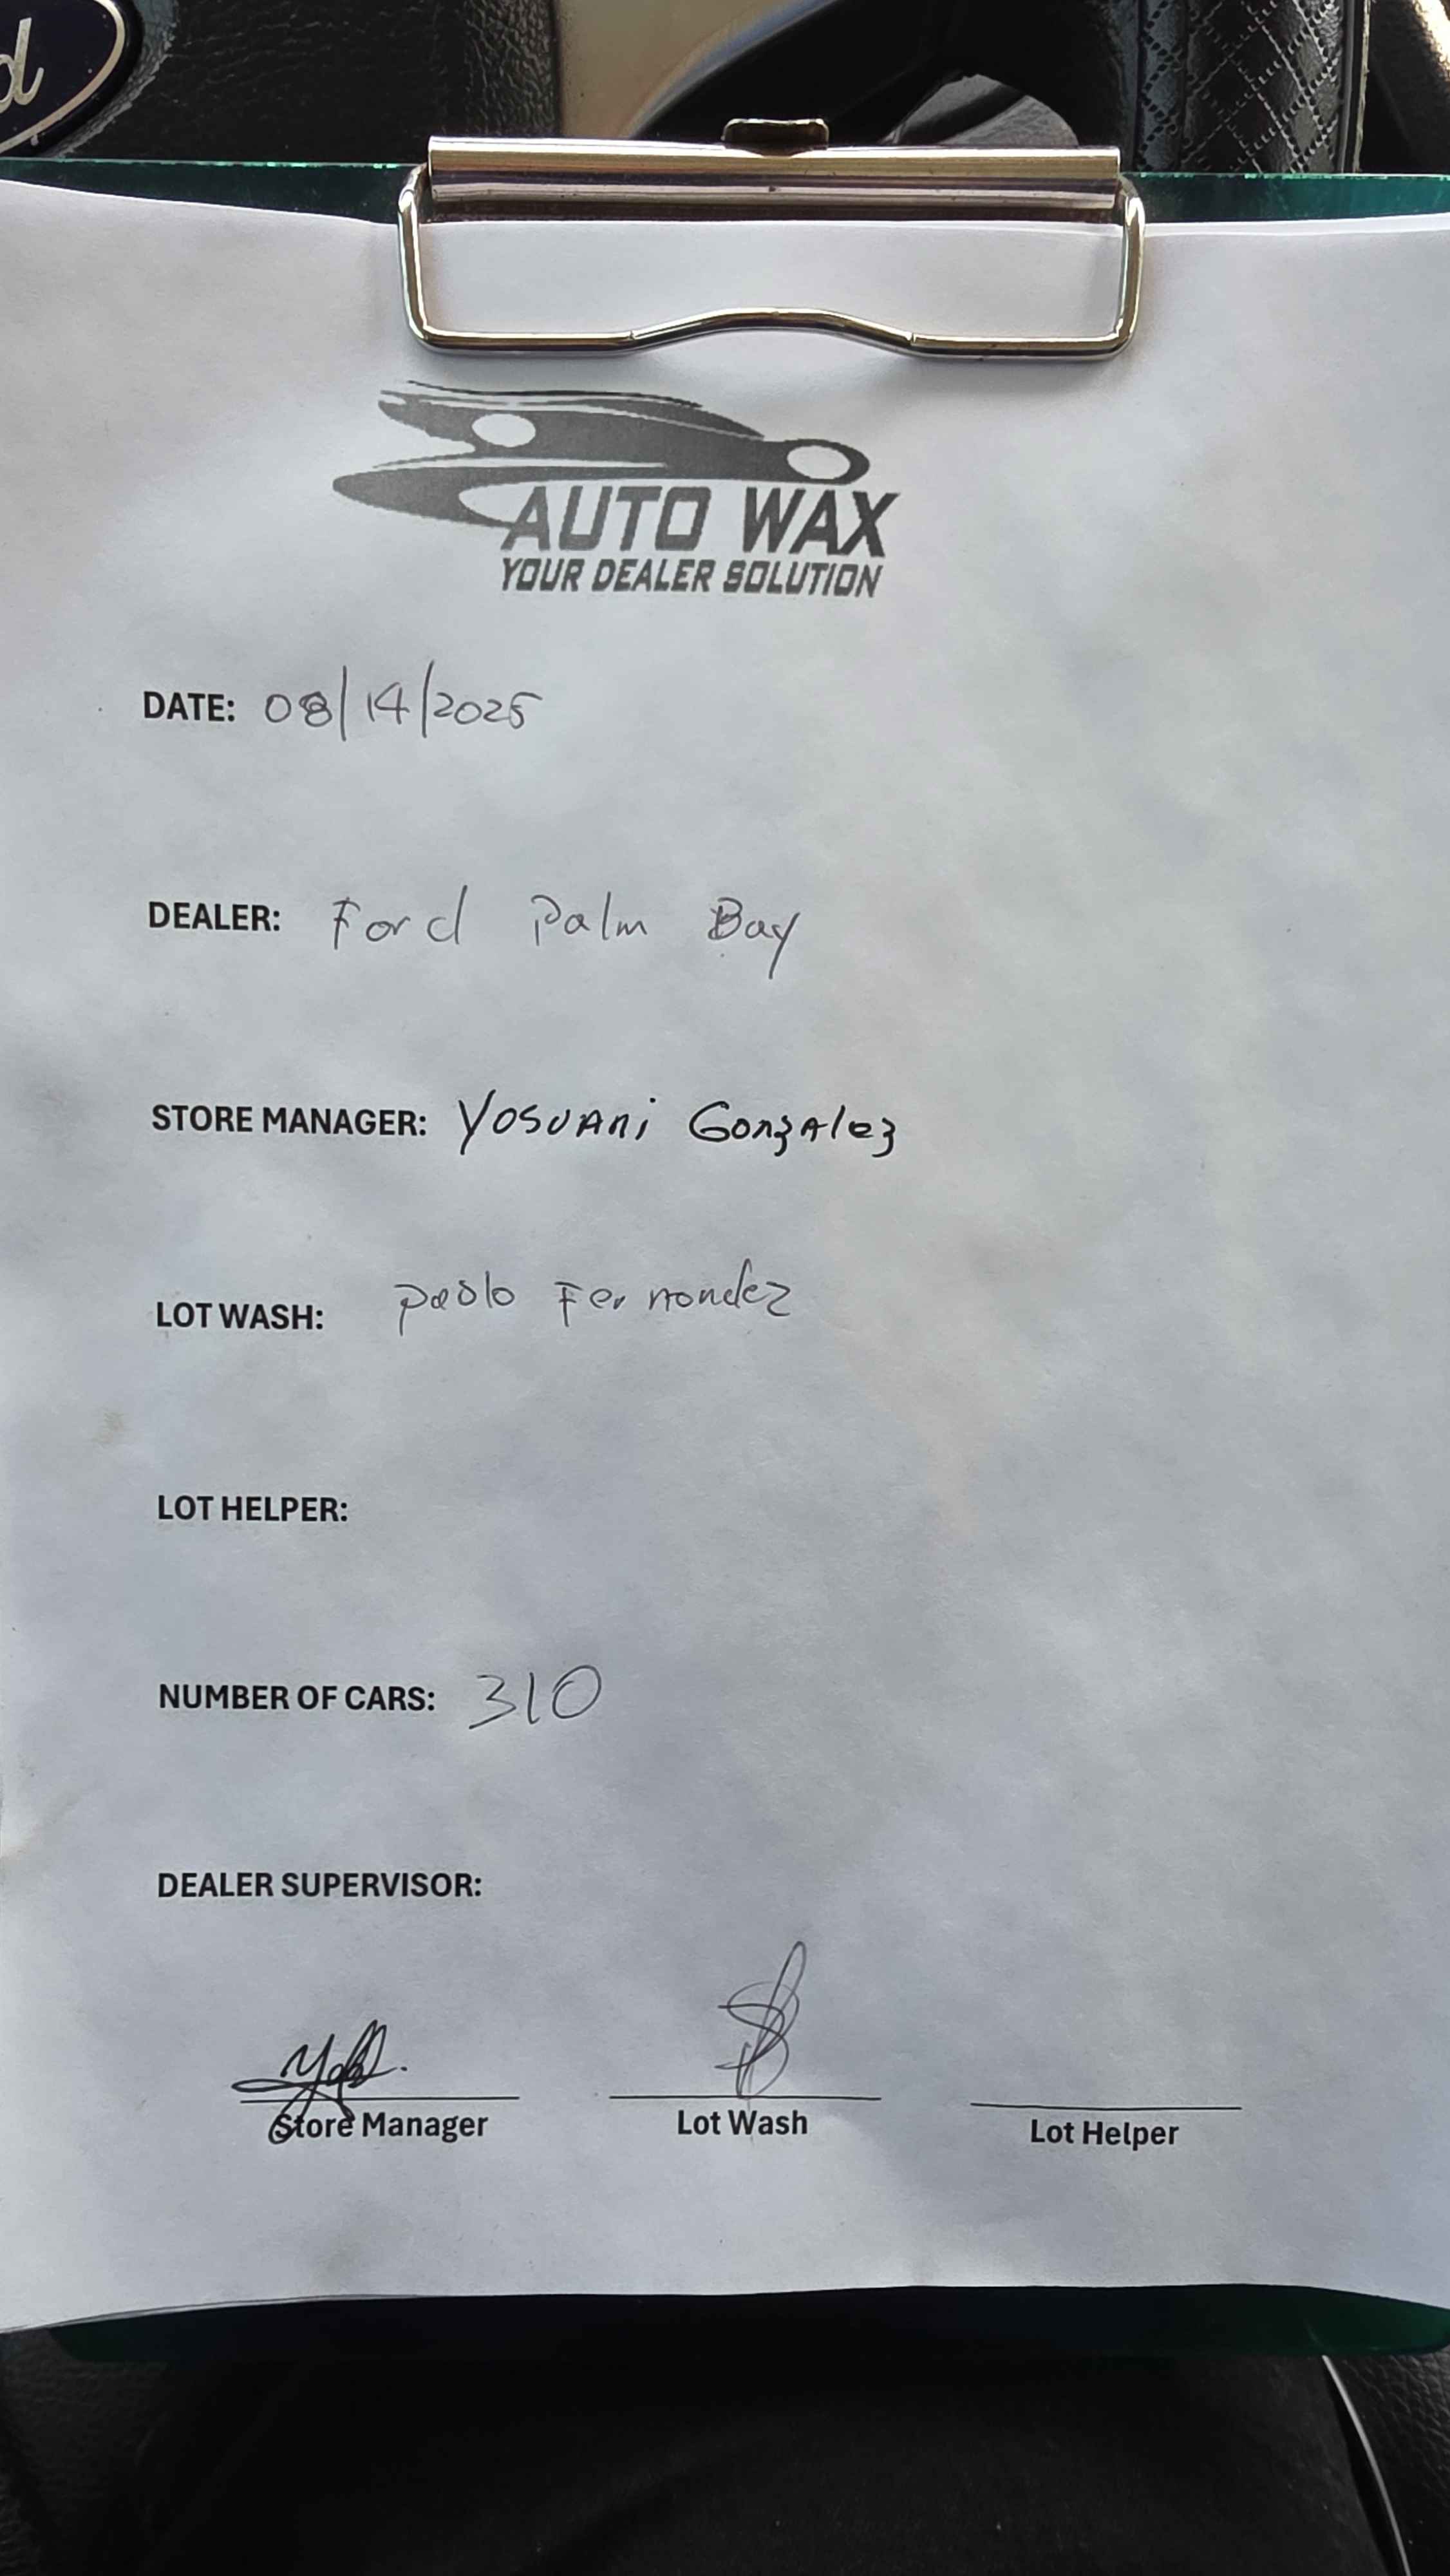 d
AUTO WAX
YOUR DEALER SOLUTION
DATE: 08/14/2025
DEALER: Ford Palm Bay
STORE MANAGER: Yosvani Gonzalez
LOT WASH: Pablo Fernandez
LOT HELPER:
NUMBER OF CARS: 310
DEALER SUPERVISOR:
Store Manager Lot Wash Lot Helper